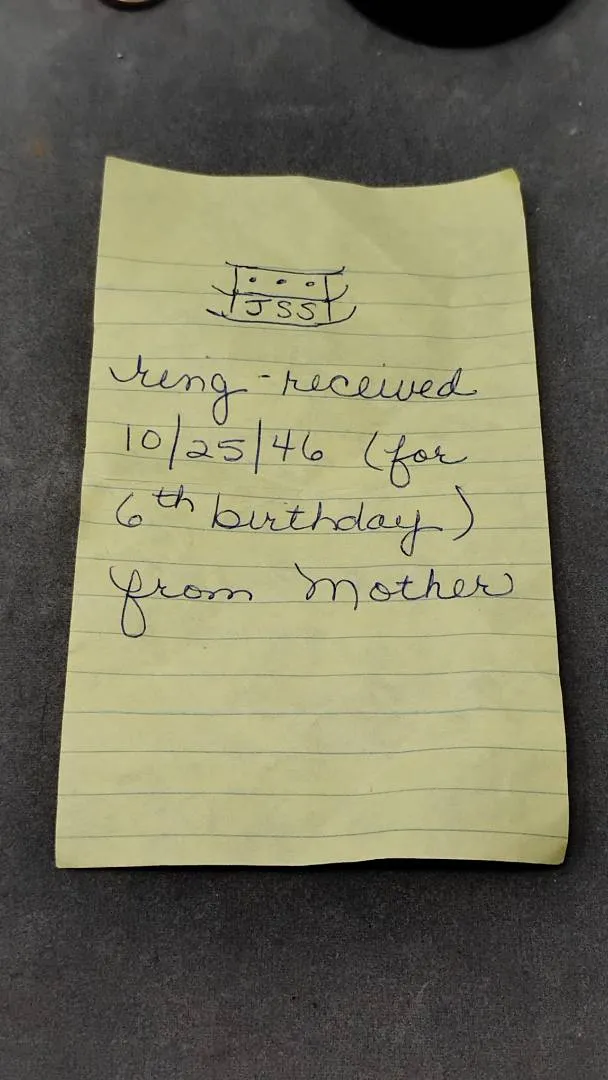 JSS
ring - received
10/25/46 (for
6th birthday)
from Mother